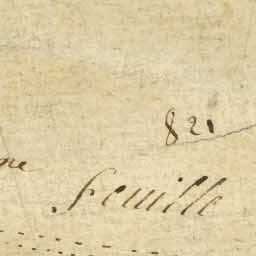 821
ne
feuille